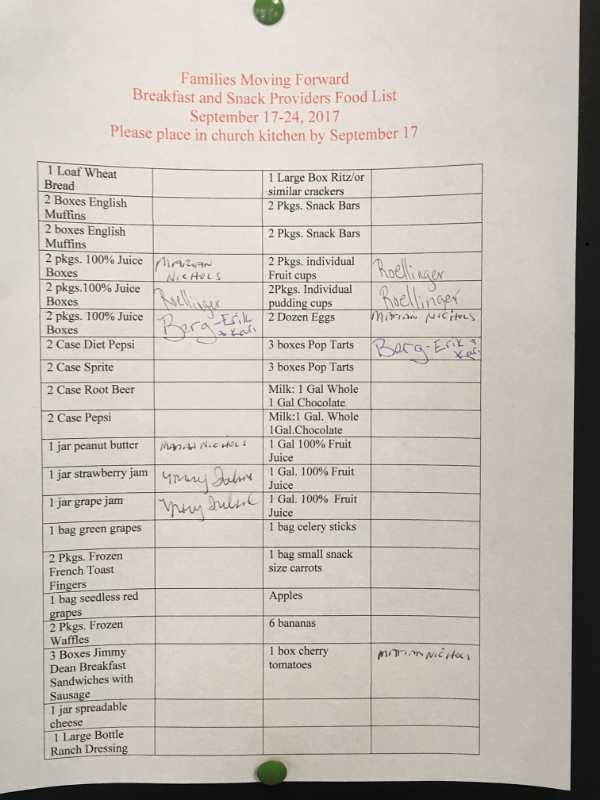 Families Moving Forward
Breakfast and Snack Providers Food List
September 17-24, 2017
Please place in church kitchen by September 17
1 Loaf Wheat
Bread
1 Large Box Ritz/or
similar crackers
2 Boxes English
Muffins
2 Pkgs. Snack Bars
2 boxes English
Muffins
2 Pkgs. Snack Bars
2 pkgs. 100% Juice
Boxes
Miriam
Nichols
2 Pkgs. individual
Fruit cups
Roellinger
2 pkgs.100% Juice
Boxes
Roellinger
2Pkgs. Individual
pudding cups
Roellinger
2 pkgs. 100% Juice
Boxes
Berg-Erik
& Kari
2 Dozen Eggs
Miriam Nichols
2 Case Diet Pepsi
3 boxes Pop Tarts
Berg-Erik &
Kari
2 Case Sprite
3 boxes Pop Tarts
2 Case Root Beer
Milk: 1 Gal Whole
1 Gal Chocolate
2 Case Pepsi
Milk:1 Gal. Whole
1Gal.Chocolate
1 jar peanut butter
Miriam Nichols
1 Gal 100% Fruit
Juice
1 jar strawberry jam
Mary
1 Gal. 100% Fruit
Juice
1 jar grape jam
Mary
1 Gal. 100% Fruit
Juice
1 bag green grapes
1 bag celery sticks
2 Pkgs. Frozen
French Toast
Fingers
1 bag small snack
size carrots
1 bag seedless red
grapes
Apples
2 Pkgs. Frozen
Waffles
6 bananas
3 Boxes Jimmy
Dean Breakfast
Sandwiches with
Sausage
1 box cherry
tomatoes
Miriam Nichols
1 jar spreadable
cheese
1 Large Bottle
Ranch Dressing